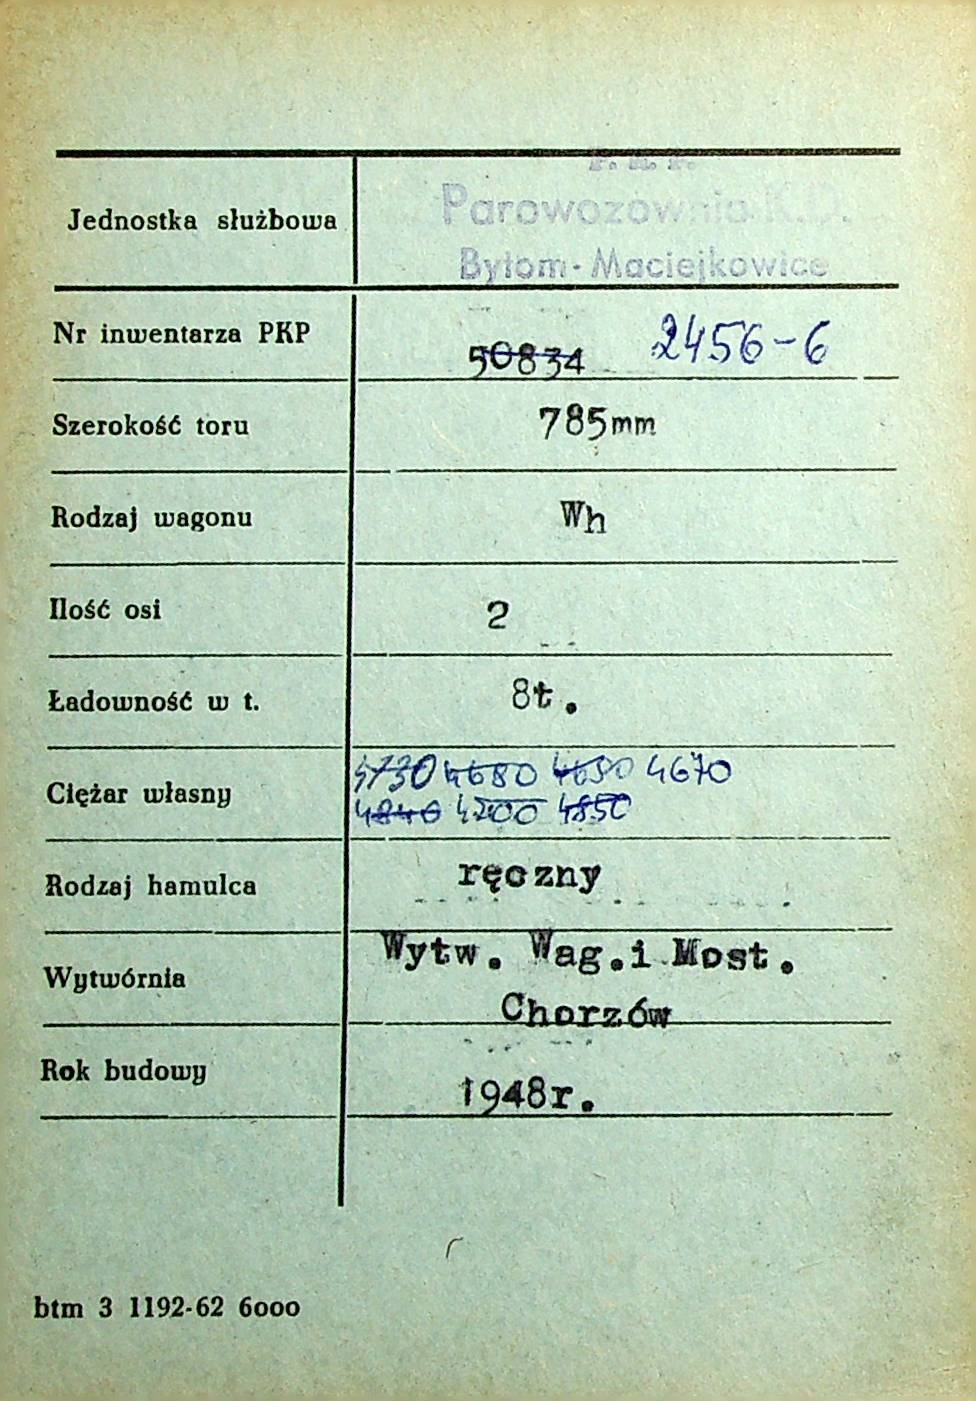 P. K. P.
Jednostka służbowa Parowozownia K.D.
Bytom-Maciejkowice
Nr inwentarza PKP 50834 2456-6
Szerokość toru 785mm
Rodzaj wagonu Wh
Ilość osi 2
Ładowność w t. 8t.
4730 4680 4650 4670
Ciężar własny
4840 4200 4850
Rodzaj hamulca ręczny
Wytw. Wag.i Most.
Wytwórnia
Chorzów
Rok budowy 1948r.
btm 3 1192-62 6000